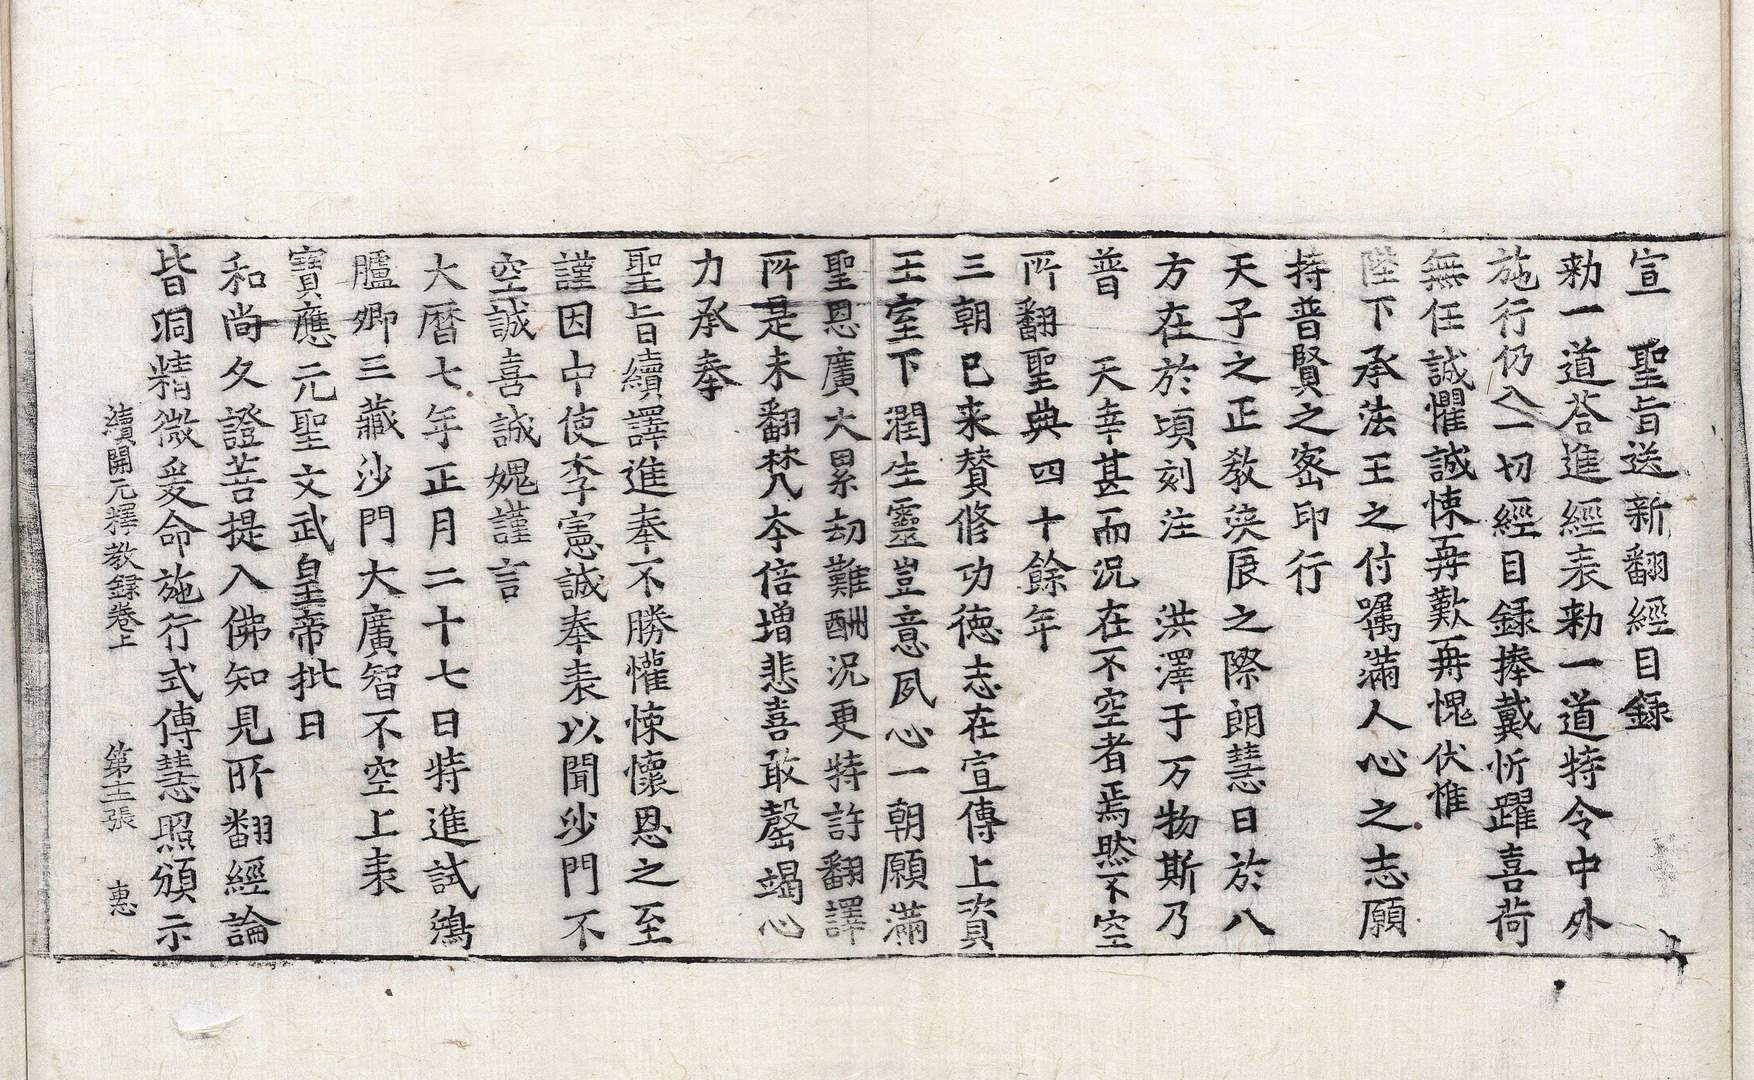 宣 聖旨送新翻經目録
勑一道荅進經表勑一道特令中外
施行仍入一切經目録捧戴忻躍喜荷
無任誠懼誠悚再歎再愧伏惟
陛下承法王之付囑滿人心之志願
持普賢之密印行
天子之正敎浹辰之際朗慧日於八
方在於頃刻注 洪澤于万物斯乃
普 天幸甚而況在不空者焉然不空
所翻聖典四十餘年
三朝已来賛俢功德志在宣傳上資
王室下潤生靈豈意夙心一朝願滿
聖恩廣大累劫難酬況更特許翻譯
所是未翻梵夲倍增悲喜敢罄竭心
力承奉
聖旨續譯進奉不勝懽悚懷恩之至
謹因中使李憲誠奉表以聞沙門不
空誠喜誠媿謹言
大曆七年正月二十七日特進試鴻
臚卿三藏沙門大廣智不空上表
寶應元聖文武皇帝批日
和尚久證菩提入佛知見所翻經論
皆洞精微爰命施行式傳慧照頒示
續開元釋教録卷上 第十二張 惠